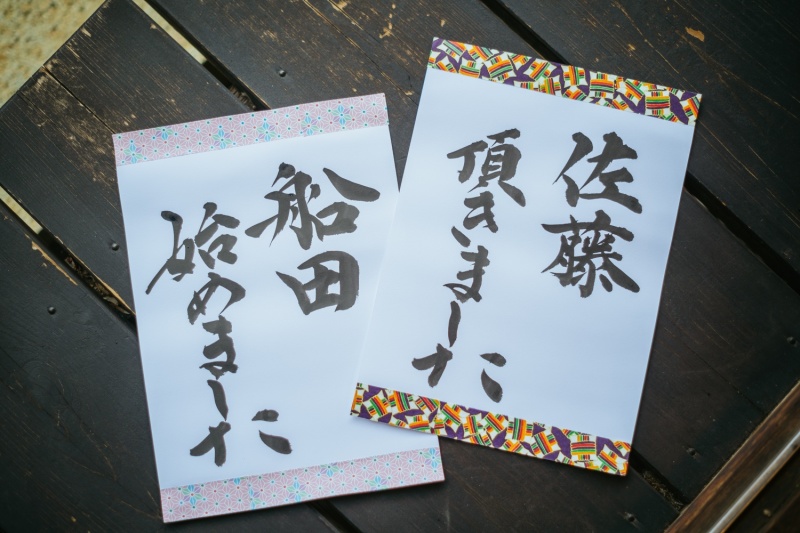 佐藤
頂きました
船田
始めました